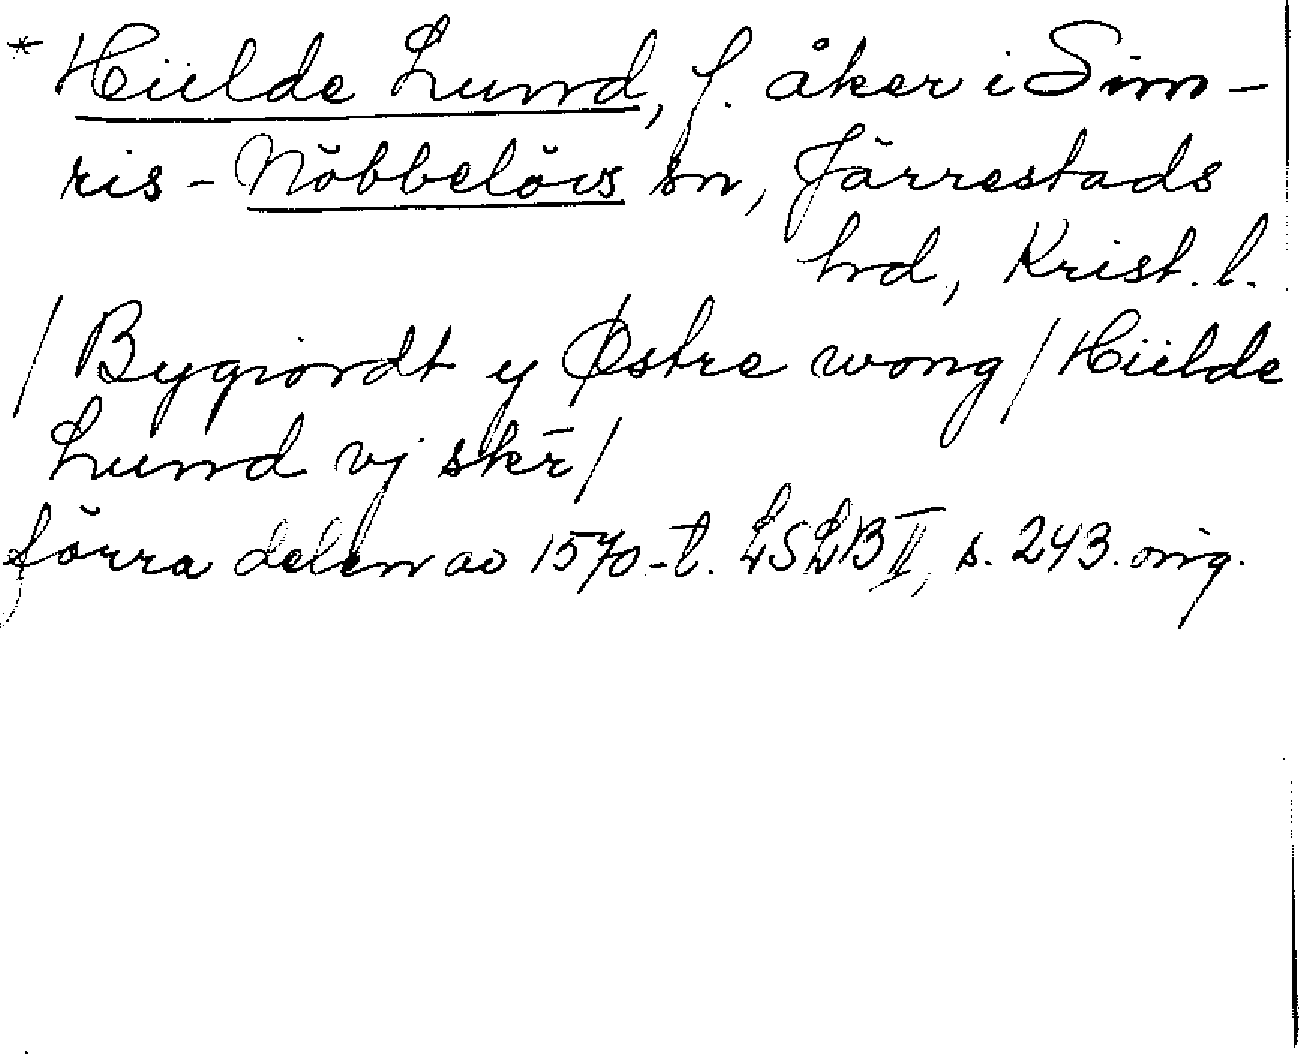 * Hiilde Lund, f. åker i Sim-
ris-Nöbbelövs sn, Järrestads
hd, Krist. l.
/ Bygiordt y Østre wong / Hiilde
Lund vj skr̄ /
förra delen av 1570-t. LSLB II, s. 243. orig.